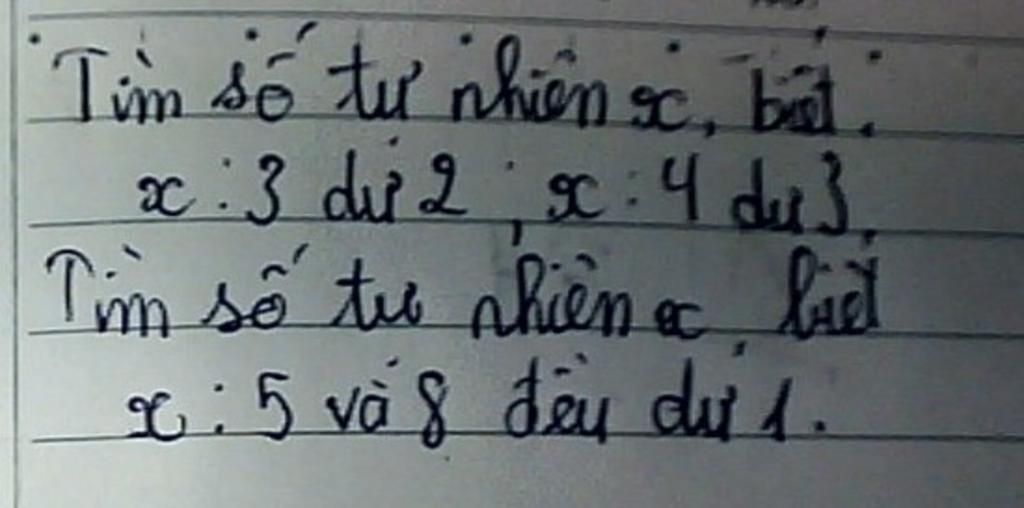 Tìm số tự nhiên x, biết.
x : 3 dư 2 ; x : 4 dư 3.
Tìm số tự nhiên x, biết
x : 5 và 8 đều dư 1.